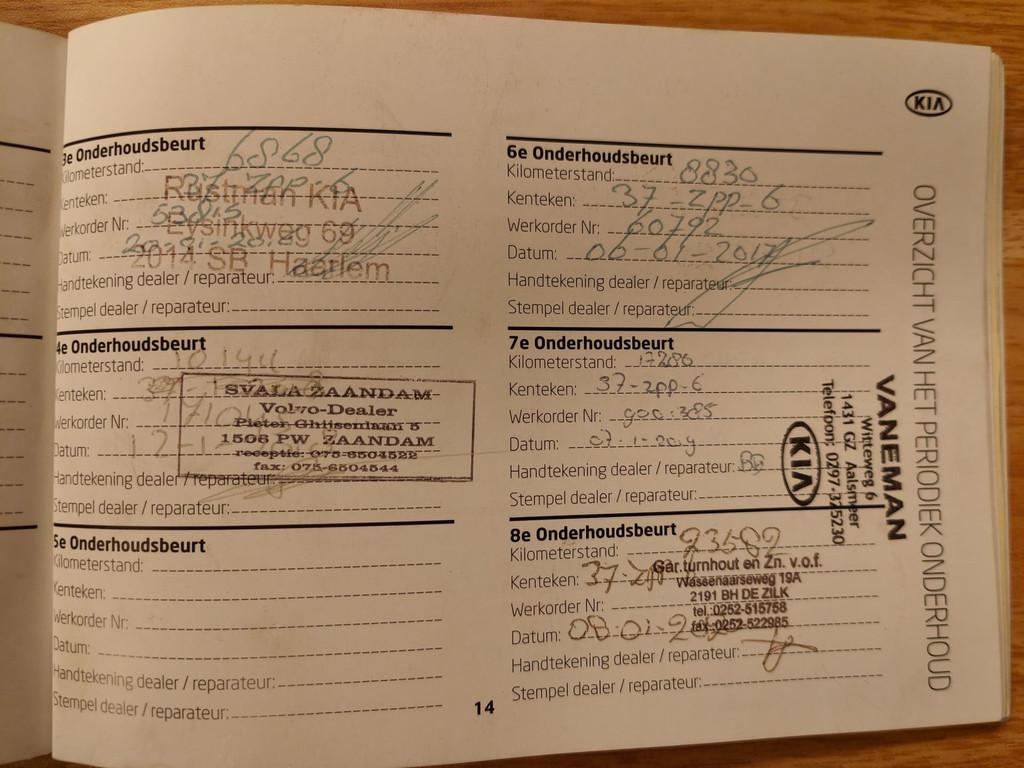 3e Onderhoudsbeurt
Kilometerstand: 6868
Kenteken: 37-ZPP-6
Rustman KIA
Werkorder Nr:
Eysinkweg 69
Datum:
2014 SB Haarlem
Handtekening dealer / reparateur:
Stempel dealer / reparateur:
4e Onderhoudsbeurt
Kilometerstand:
Kenteken:
Werkorder Nr:
Datum:
Handtekening dealer / reparateur:
Stempel dealer / reparateur:
SVALA ZAANDAM
Volvo-Dealer
Pieter Ghijsenlaan 5
1506 PW ZAANDAM
receptie: 075-6504522
fax: 075-6504544
5e Onderhoudsbeurt
Kilometerstand:
Kenteken:
Werkorder Nr:
Datum:
Handtekening dealer / reparateur:
Stempel dealer / reparateur:
6e Onderhoudsbeurt
Kilometerstand: 8830
Kenteken: 37-ZPP-6
Werkorder Nr: 60792
Datum: 06-01-2017
Handtekening dealer / reparateur:
Stempel dealer / reparateur:
7e Onderhoudsbeurt
Kilometerstand: 17286
Kenteken: 37-ZPP-6
Werkorder Nr: 900.385
Datum: 07-1-2019
Handtekening dealer / reparateur:
Stempel dealer / reparateur:
VANEMAN
Witteweg 6
1431 GZ Aalsmeer
Telefoon: 0297-325230
KIA
8e Onderhoudsbeurt
Kilometerstand: 23582
Kenteken: 37-ZPP
Werkorder Nr:
Datum: 08-01-20
Handtekening dealer / reparateur:
Stempel dealer / reparateur:
Gar. turnhout en Zn. v.o.f.
Wassenaarseweg 19A
2191 BH DE ZILK
tel.:0252-515758
fax.:0252-522985
KIA
OVERZICHT VAN HET PERIODIEK ONDERHOUD
14